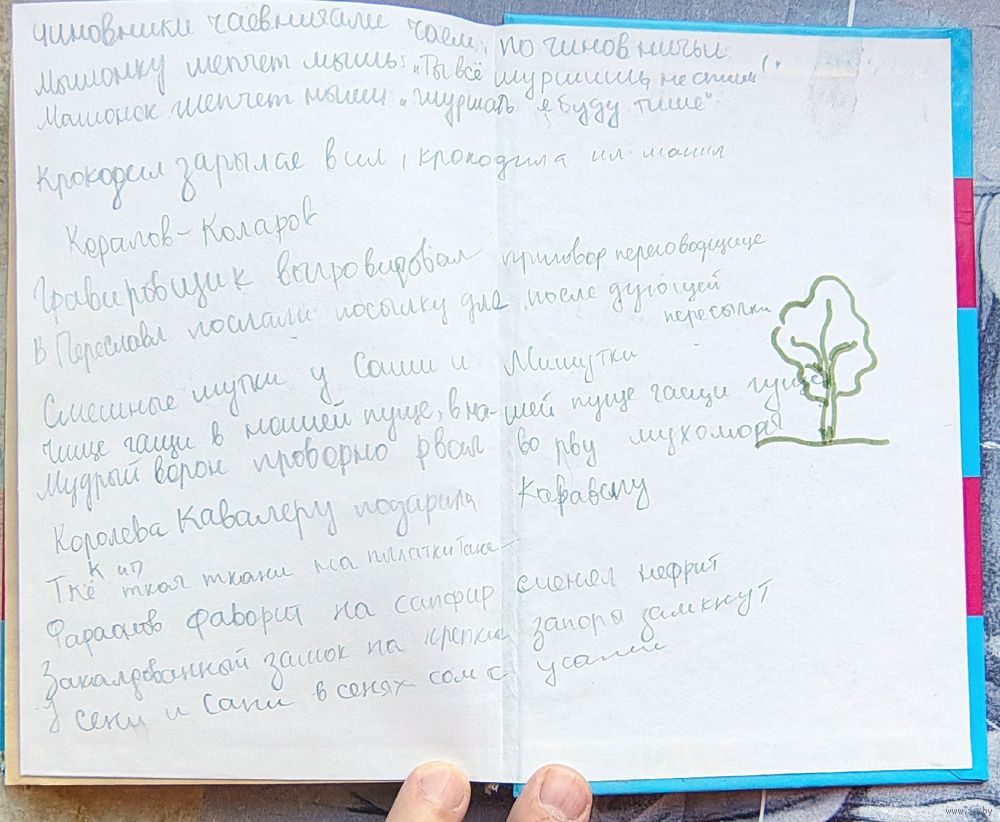 чиновники чаёвничали чаем, по чиновничьи
Мышонку шепчет мышь: „Ты всё шуршишь, не спишь!".
Мышонок шепчет мыши „шуршать я буду тише"
Крокодил зарылае в ил, крокодила ил манил
Коралов-Коларов
Гравировщик выгравировал приговор переговорщице
В Переславл послали посылку для последующей
пересылки
Смешные шутки у Саши и Мишутки
Чище гащи в нашей пуще, в на-шей пуще гащи гуще
Мудрый ворон проворно рвал во рву мухомор
Королева Кавалеру подарила Каравеллу
Ткё ткал ткани на платки Тане
К ип
Фараонов фаворит на сапфир сменял нефрит
Закалдованный замок на крепкие запоры замкнут
У Сени и Сани в сенях сом с усами
www.ay.by